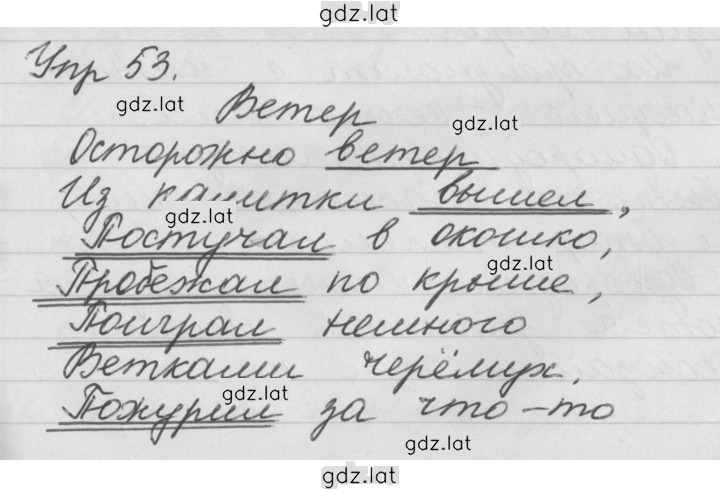 gdz.lat
Упр 53.
gdz.lat
Ветер
gdz.lat
Осторожно ветер
Из калитки вышел,
gdz.lat
Постучал в окошко,
gdz.lat
Пробежал по крыше,
Поиграл немного
Ветками черёмух.
gdz.lat
Пожурил за что-то
gdz.lat
gdz.lat